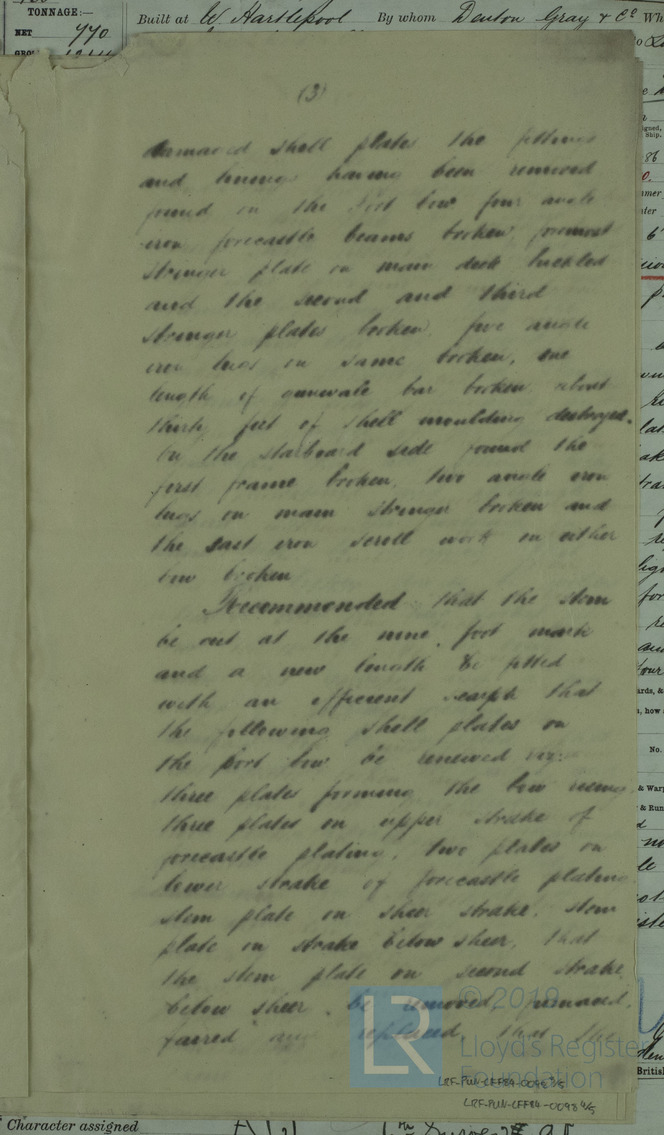 TONNAGE:—
NET 770
Built at W. Hartlepool By whom Denton Gray & Co Wh
(3)
damaged shell plates the fittings
and linings having been removed
found on the Port bow four angle
iron forecastle beams broken, foremost
stringer plate on main deck buckled
and the second and third
stringer plates broken, five angle
iron lugs on same broken, one
length of gunwale bar broken, about
thirty feet of shell moulding destroyed.
On the starboard side found the
first frame broken, two angle iron
lugs on main stringer broken and
the cast iron scroll work on either
bow broken
Recommended that the stem
be cut at the nine foot mark
and a new length be fitted
with an efficient scarph that
the following shell plates on
the port bow be renewed viz:
three plates forming the bow
three plates on upper strake of
forecastle plating, two plates on
lower strake of forecastle plating
stem plate on sheer strake, stem
plate on strake below sheer, that
the stem plate on second strake
below sheer be removed,
faired and replaced, that the
© 2019
LR
Lloyd's Register
Foundation
LRF-PUN-LFF84-0098
LRF-PUN-LFF84-0098
Character assigned